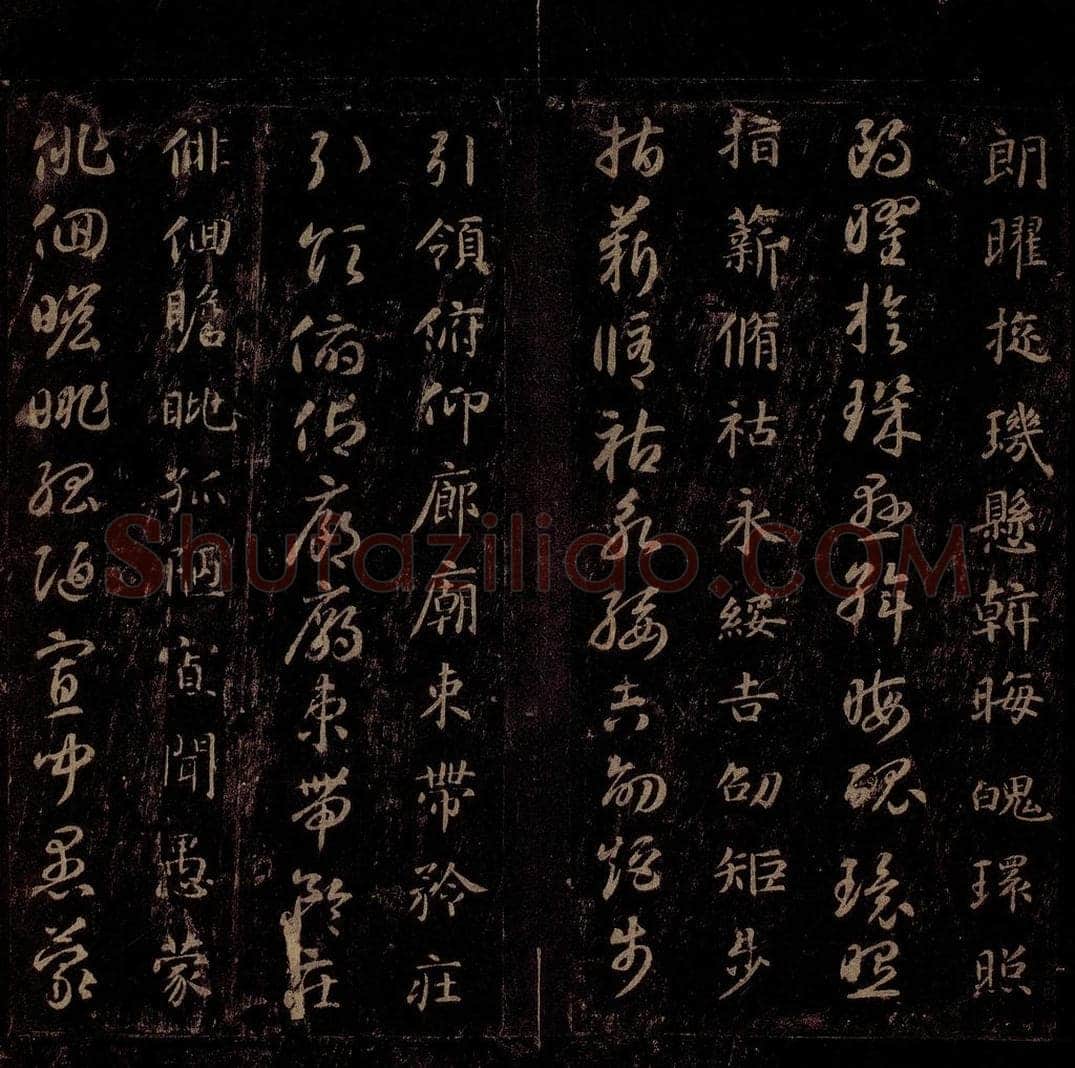 朗曜旋璣懸斡晦魄環照
朗曜旋璣懸斡晦魄環照
指薪脩祜永綏吉劭矩步
指薪脩祜永綏吉劭矩步
引領俯仰廊廟束帶矜莊
引領俯仰廊廟束帶矜莊
俳佪瞻眺孤陋寡聞愚蒙
俳佪瞻眺孤陋寡聞愚蒙
Shufaziliao.COM